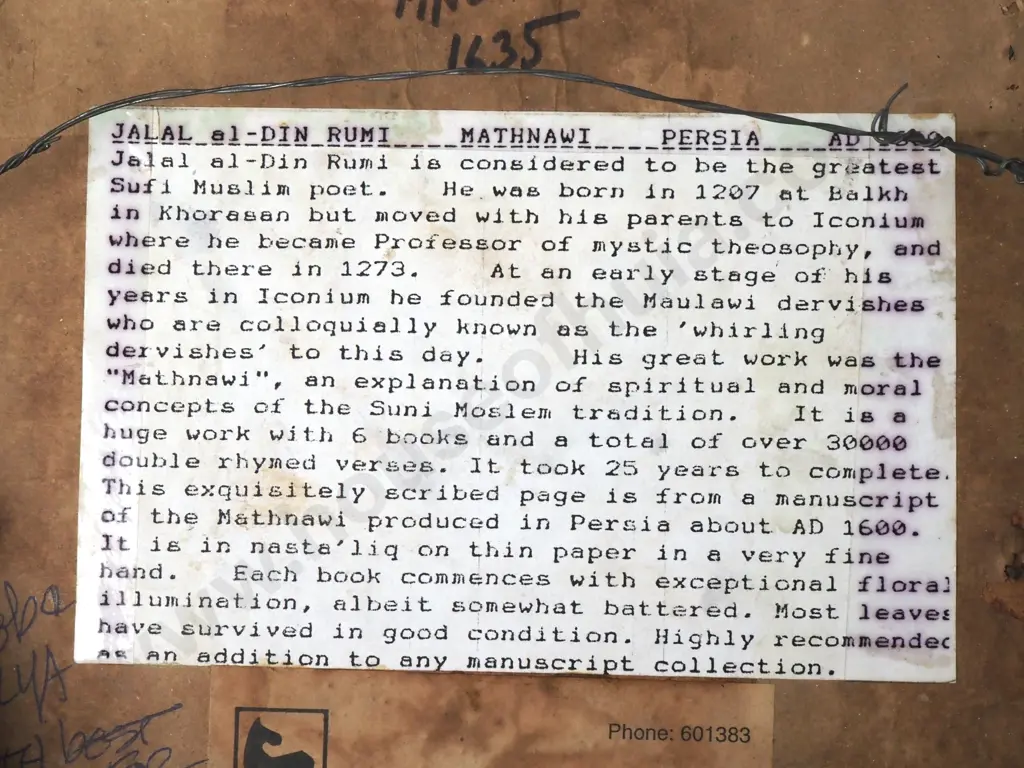 1635
JALAL al-DIN RUMI MATHNAWI PERSIA AD
Jalal al-Din Rumi is considered to be the greatest
Sufi Muslim poet. He was born in 1207 at Balkh
in Khorasan but moved with his parents to Iconium
where he became Professor of mystic theosophy, and
died there in 1273. At an early stage of his
years in Iconium he founded the Maulawi dervishes
who are colloquially known as the 'whirling
dervishes' to this day. His great work was the
"Mathnawi", an explanation of spiritual and moral
concepts of the Suni Moslem tradition. It is a
huge work with 6 books and a total of over 30000
double rhymed verses. It took 25 years to complete.
This exquisitely scribed page is from a manuscript
of the Mathnawi produced in Persia about AD 1600.
It is in nasta'liq on thin paper in a very fine
hand. Each book commences with exceptional floral
illumination, albeit somewhat battered. Most leaves
have survived in good condition. Highly recommended
as an addition to any manuscript collection.
Phone: 601383